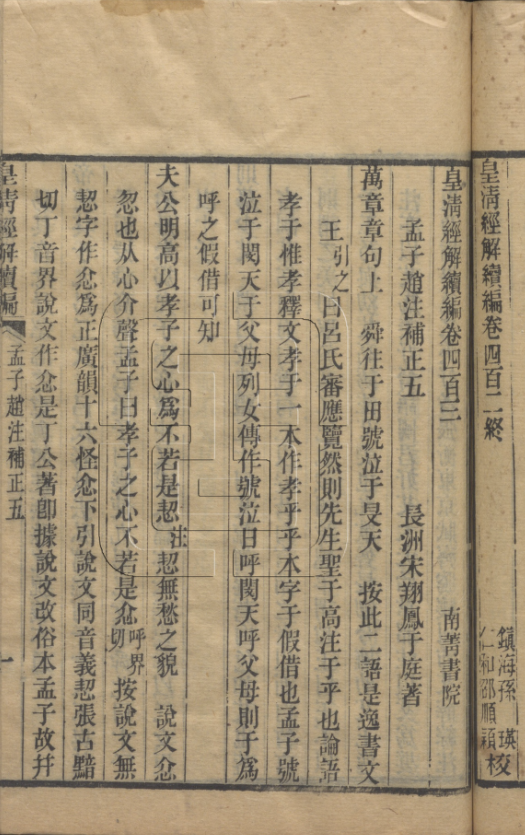 皇清經解續編卷四百二終
鎮海孫瑛
仁和邵順穎校
皇清經解續編卷四百三
南菁書院
孟子趙注補正五
長洲宋翔鳳于庭著
萬章章句上 舜往于田號泣于旻天 按此二語是逸書文
王引之曰呂氏審應覽然則先生聖于高注于乎也論語
孝于惟孝釋文孝于一本作孝乎乎本字于假借也孟子號
泣于閔天于父母列女傳作號泣日呼閔天呼父母則于爲
呼之假借可知
夫公明高以孝子之心爲不若是恝 注恝無愁之貌 說文忿
忽也从心介聲孟子曰孝子之心不若是忿呼界切按說文無
恝字作忿爲正廣韻十六怪忿下引說文同音義恝張古黠
切丁音界說文作忿是丁公著卽據說文改俗本孟子故幷
皇清經解續編
孟子趙注補正五
一